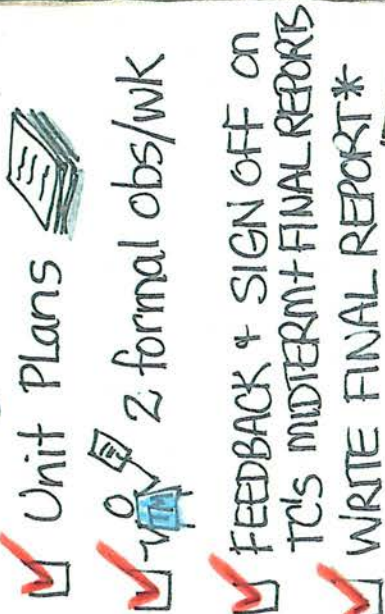 Unit Plans
2 formal obs/wk
FEEDBACK + SIGN OFF on
TC's MIDTERM + FINAL REPORTS
WRITE FINAL REPORT*